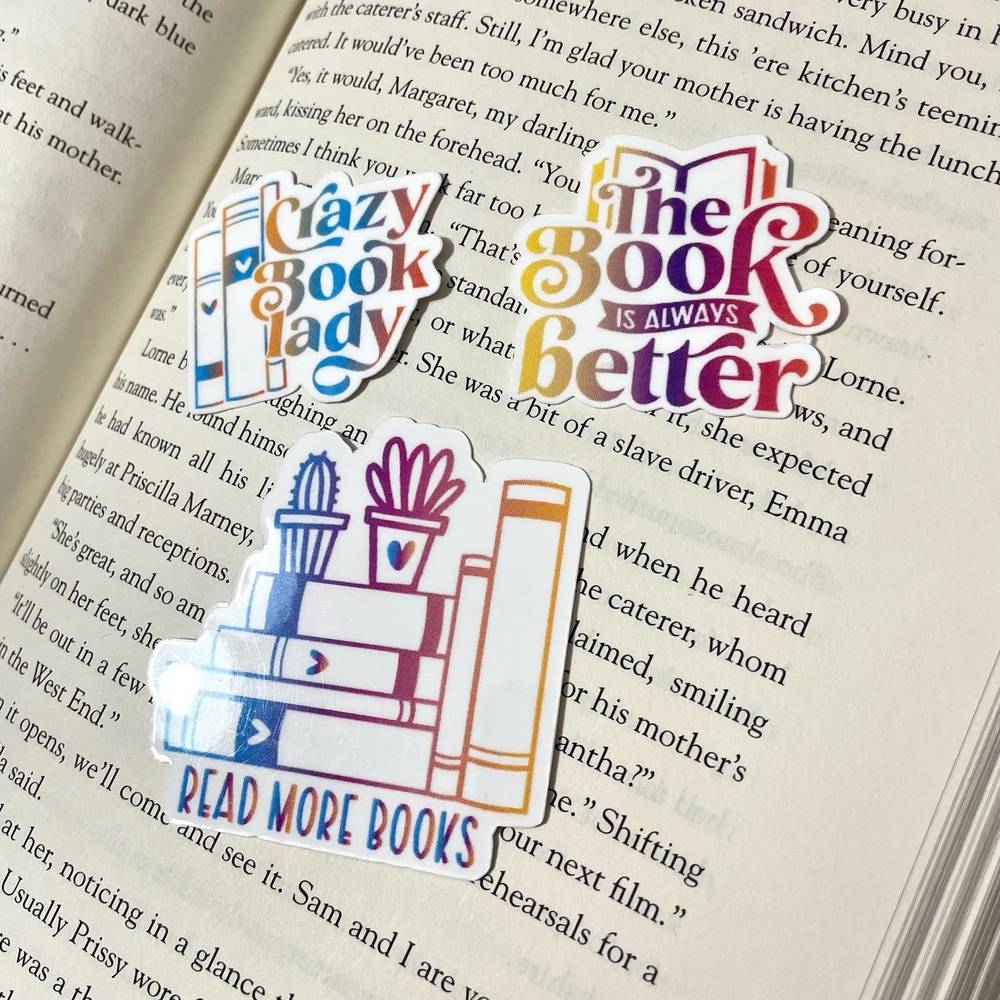 .”
dark blue
feet and walk-
at his mother.
urned
. . .
very busy in
ken sandwich. Mind you,
somewhere else, this ’ere kitchen’s teemin
with the caterer’s staff. Still, I’m glad your mother is having the lunch
catered. It would’ve been too much for me.”
“Yes, it would, Margaret, my darling
ward, kissing her on the forehead. “You
eaning for-
Sometimes I think you
far too
of yourself.
“That’s
standar
Lorne.
was.”
or what
ws, and
Lorne b
She was a bit of a slave driver, Emma
ughing an
it, she expected
his name. He found himse
he had known all his li
nd when he heard
hugely at Priscilla Marney,
he caterer, whom
big parties and receptions.
laimed, smiling
“She’s great, and so am
or his mother’s
slightly on her feet, she
antha?”
“It’ll be out in a few
ne.” Shifting
in the West End.”
our next film.”
n it opens, we’ll come and see it. Sam and I are
rehearsals for a
a said.
at her, noticing in a glance th
Usually Prissy wore
e was a th
Crazy
Book
lady
The
Book
IS ALWAYS
better
READ MORE BOOKS